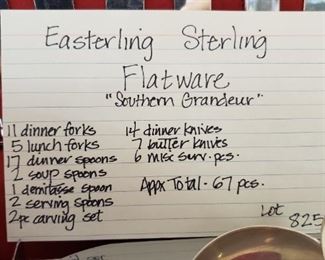 Easterling Sterling
Flatware
"Southern Grandeur"
11 dinner forks
5 lunch forks
17 dinner spoons
2 soup spoons
1 demitasse spoon
2 serving spoons
2pc carving set
14 dinner knives
7 butter knives
6 misc serv. pcs.
Appx Total - 67 pcs.
Lot 825